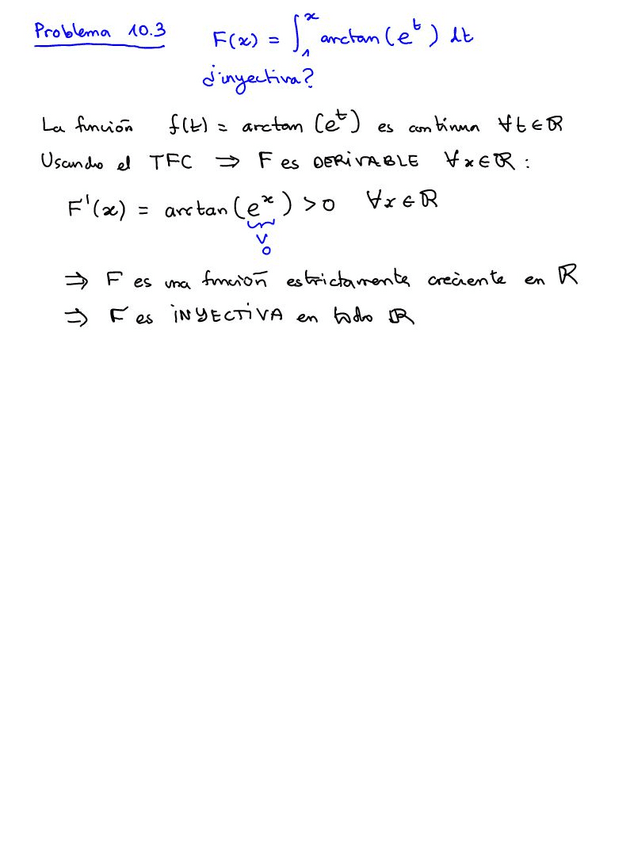 Problema 10.3 F(x) = ∫₁ˣ arctan(eᵗ) dt
¿inyectiva?
La función f(t) = arctan(eᵗ) es continua ∀t∈ℝ
Usando el TFC ⇒ F es DERIVABLE ∀x∈ℝ:
F'(x) = arctan(eˣ) > 0 ∀x∈ℝ
v
0
⇒ F es una función estrictamente creciente en ℝ
⇒ F es INYECTIVA en todo ℝ